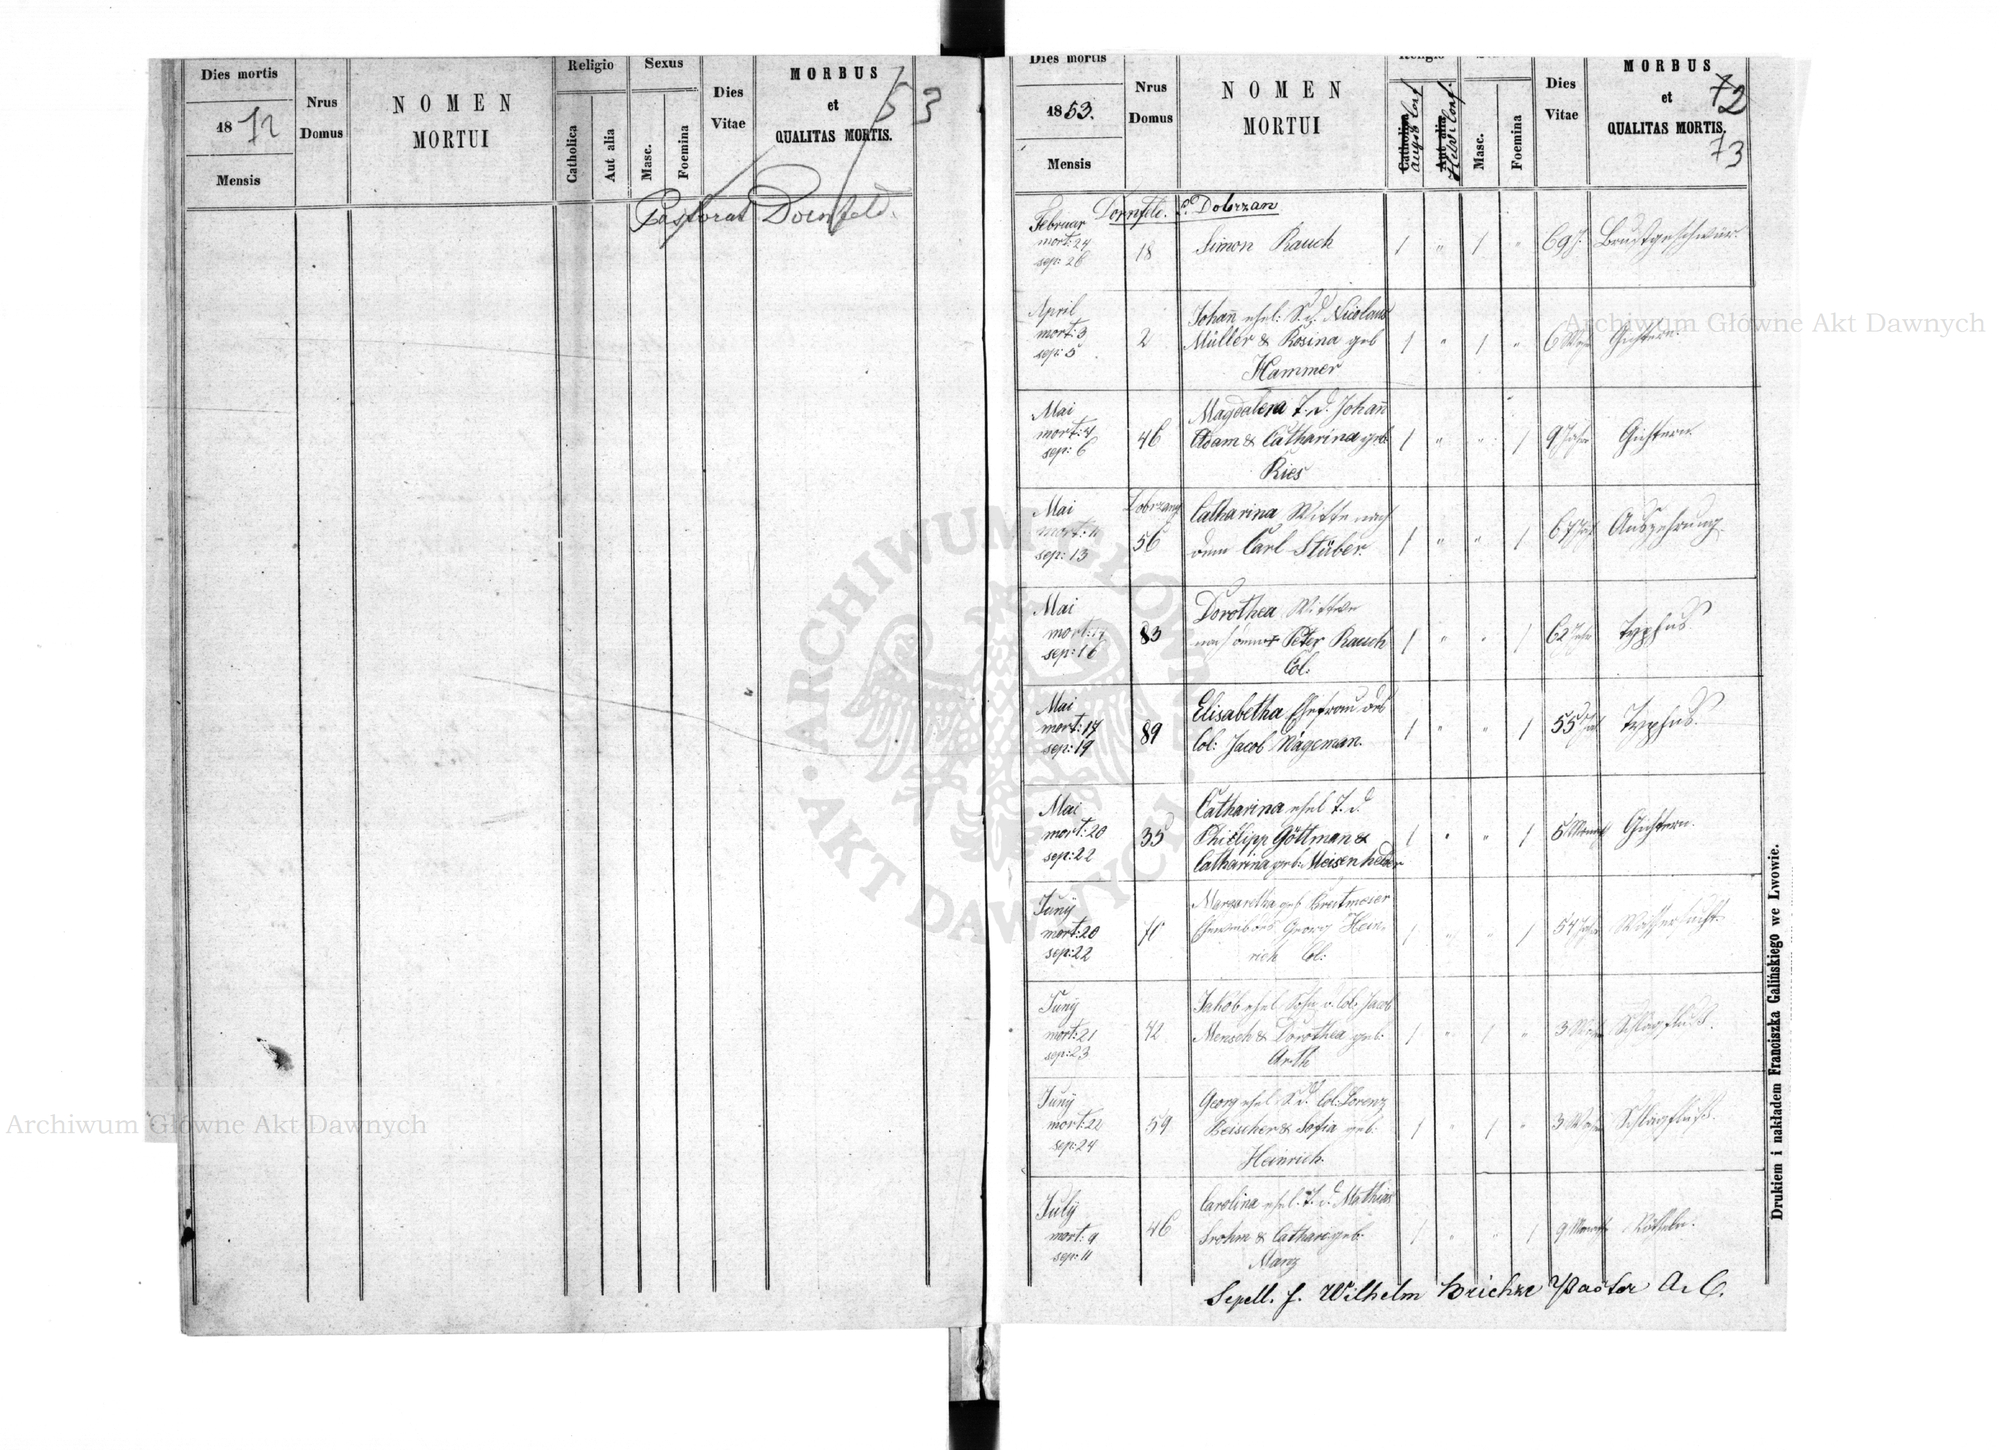 Dies mortis
1852
Mensis
Nrus
Domus
NOMEN
MORTUI
Religio
Catholica
Aut alia
Sexus
Masc.
Foemina
Dies
Vitae
MORBUS
et
QUALITAS MORTIS.
53
Pastorat Dornfeld.
Dies mortis
1853.
Mensis
Nrus
Domus
NOMEN
MORTUI
Religio
Catholica
Augsb Conf
Aut alia
Helvet Conf.
Masc.
Foemina
Dies
Vitae
MORBUS
et
QUALITAS MORTIS.
72
73
Dornfeld. Dobrzan
Februar
mort: 24
sep: 26
18
Simon Rauch
1 " 1 "
69 J.
Brustgeschwür.
April
mort: 3
sep: 5
2
Johañ ehel: S. d. Nicolaus
Müller & Rosina geb
Hammer
1 " 1 "
6 Woch
Gichtern.
Mai
mort: 4
sep: 6
46
Magdalena T. d. Johañ
Adam & Catharina geb.
Ries
1 " " 1
9 Jahr
Gichtern.
Mai
mort: 11
sep: 13
Dobrzany
56
Catharina Witte nach
dem Carl Stüber.
1 " " 1
67 Jah
Auszehrung
Mai
mort: 14
sep: 16
83
Dorothea Wittwe
nach dem Peter Rauch
Col.
1 " " 1
62 Jahr
Typhus.
Mai
mort: 17
sep: 19
89
Elisabetha Ehefrau des
Col: Jacob Wägeman.
1 " " 1
55 Jah
Typhus.
Mai
mort: 20
sep: 22
35
Catharina ehel T. d.
Philipp Göttman &
Catharina geb: Meisenhelder
1 " " 1
Monat
Gichtern.
Junÿ
mort: 20
sep: 22
70
Margaretha geb. Breitmeier
Eheweib des Georg Hein,
rich Col:
1 " " 1
54 Jahr
Wassersucht.
Junÿ
mort: 21
sep: 23
42
Jakob ehel Sohn v. Col: Jacob
Mensch & Dorothea geb:
Arth
1 " 1 "
3 Woch
Schlagfluß.
Junÿ
mort: 22
sep: 24
59
Georg ehel S. d. Col: Lorenz
Beischer & Sofia geb:
Heinrich.
1 " 1 "
3 Woch
Schlagfluß.
July
mort: 9
sep: 11
46
Carolina ehel. T. d. Mathias
Frohm & Cathari geb.
Manz
1 " " 1
9 Monath
Rötheln.
Sepell. f. Wilhelm Pastor A. C.
Drukiem i nakładem Franciszka Galińskiego we Lwowie.
Archiwum Główne Akt Dawnych
Archiwum Główne Akt Dawnych
ARCHIWUM GŁÓWNE
AKT DAWNYCH